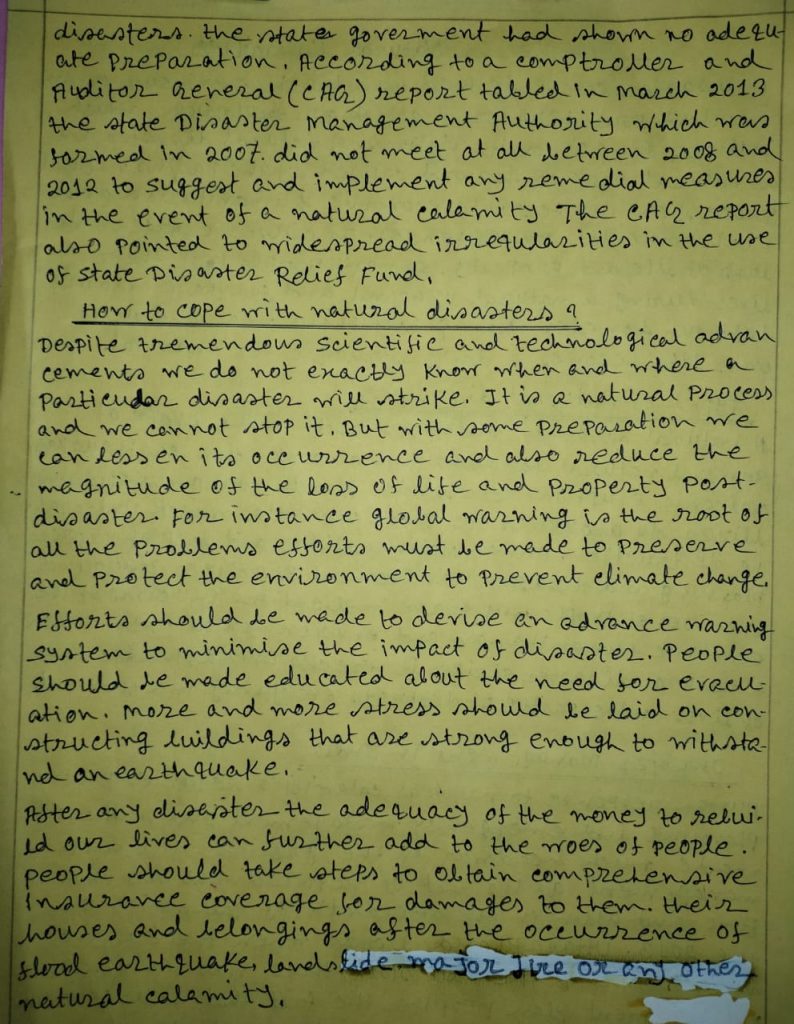 disasters. the state goverment had shown no adequ-
ate preparation. According to a comptroller and
Auditor General (CAG) report tabled in March 2013
the state Disaster Management Authority which was
formed in 2007. did not meet at all between 2008 and
2012 to suggest and implement any remedial measures
in the event of a natural calamity The CAG report
also pointed to widespread irregularities in the use
of State Disaster Relief Fund.
How to cope with natural disasters?
Despite tremendous scientific and technological advan
cements we do not exactly know when and where a
particular disaster will strike. It is a natural process
and we cannot stop it. But with some preparation we
can lessen its occurrence and also reduce the
magnitude of the loss of life and property post-
disaster. For instance global warning is the root of
all the problems efforts must be made to preserve
and protect the environment to prevent climate change.
Efforts should be made to devise an advance warning
system to minimise the impact of disaster. People
should be made educated about the need for evacu-
ation. More and more stress should be laid on con-
structing buildings that are strong enough to withsta-
nd an earthquake.
After any disaster the adequacy of the money to rebui-
ld our lives can further add to the woes of people.
people should take steps to obtain comprehensive
insurance coverage for damages to them. their
houses and belongings after the occurrence of
flood earthquake, landslide major fire or any other
natural calamity.